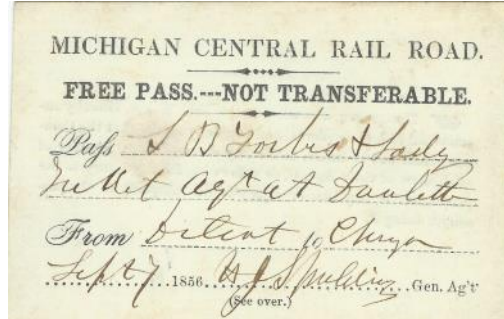 MICHIGAN CENTRAL RAIL ROAD.
FREE PASS.---NOT TRANSFERABLE.
Pass S B Forbes & Lady
Ticket Agt at
From Detroit to Chicago
Sept 7 1856. Spaulding Gen. Ag't
(See over.)